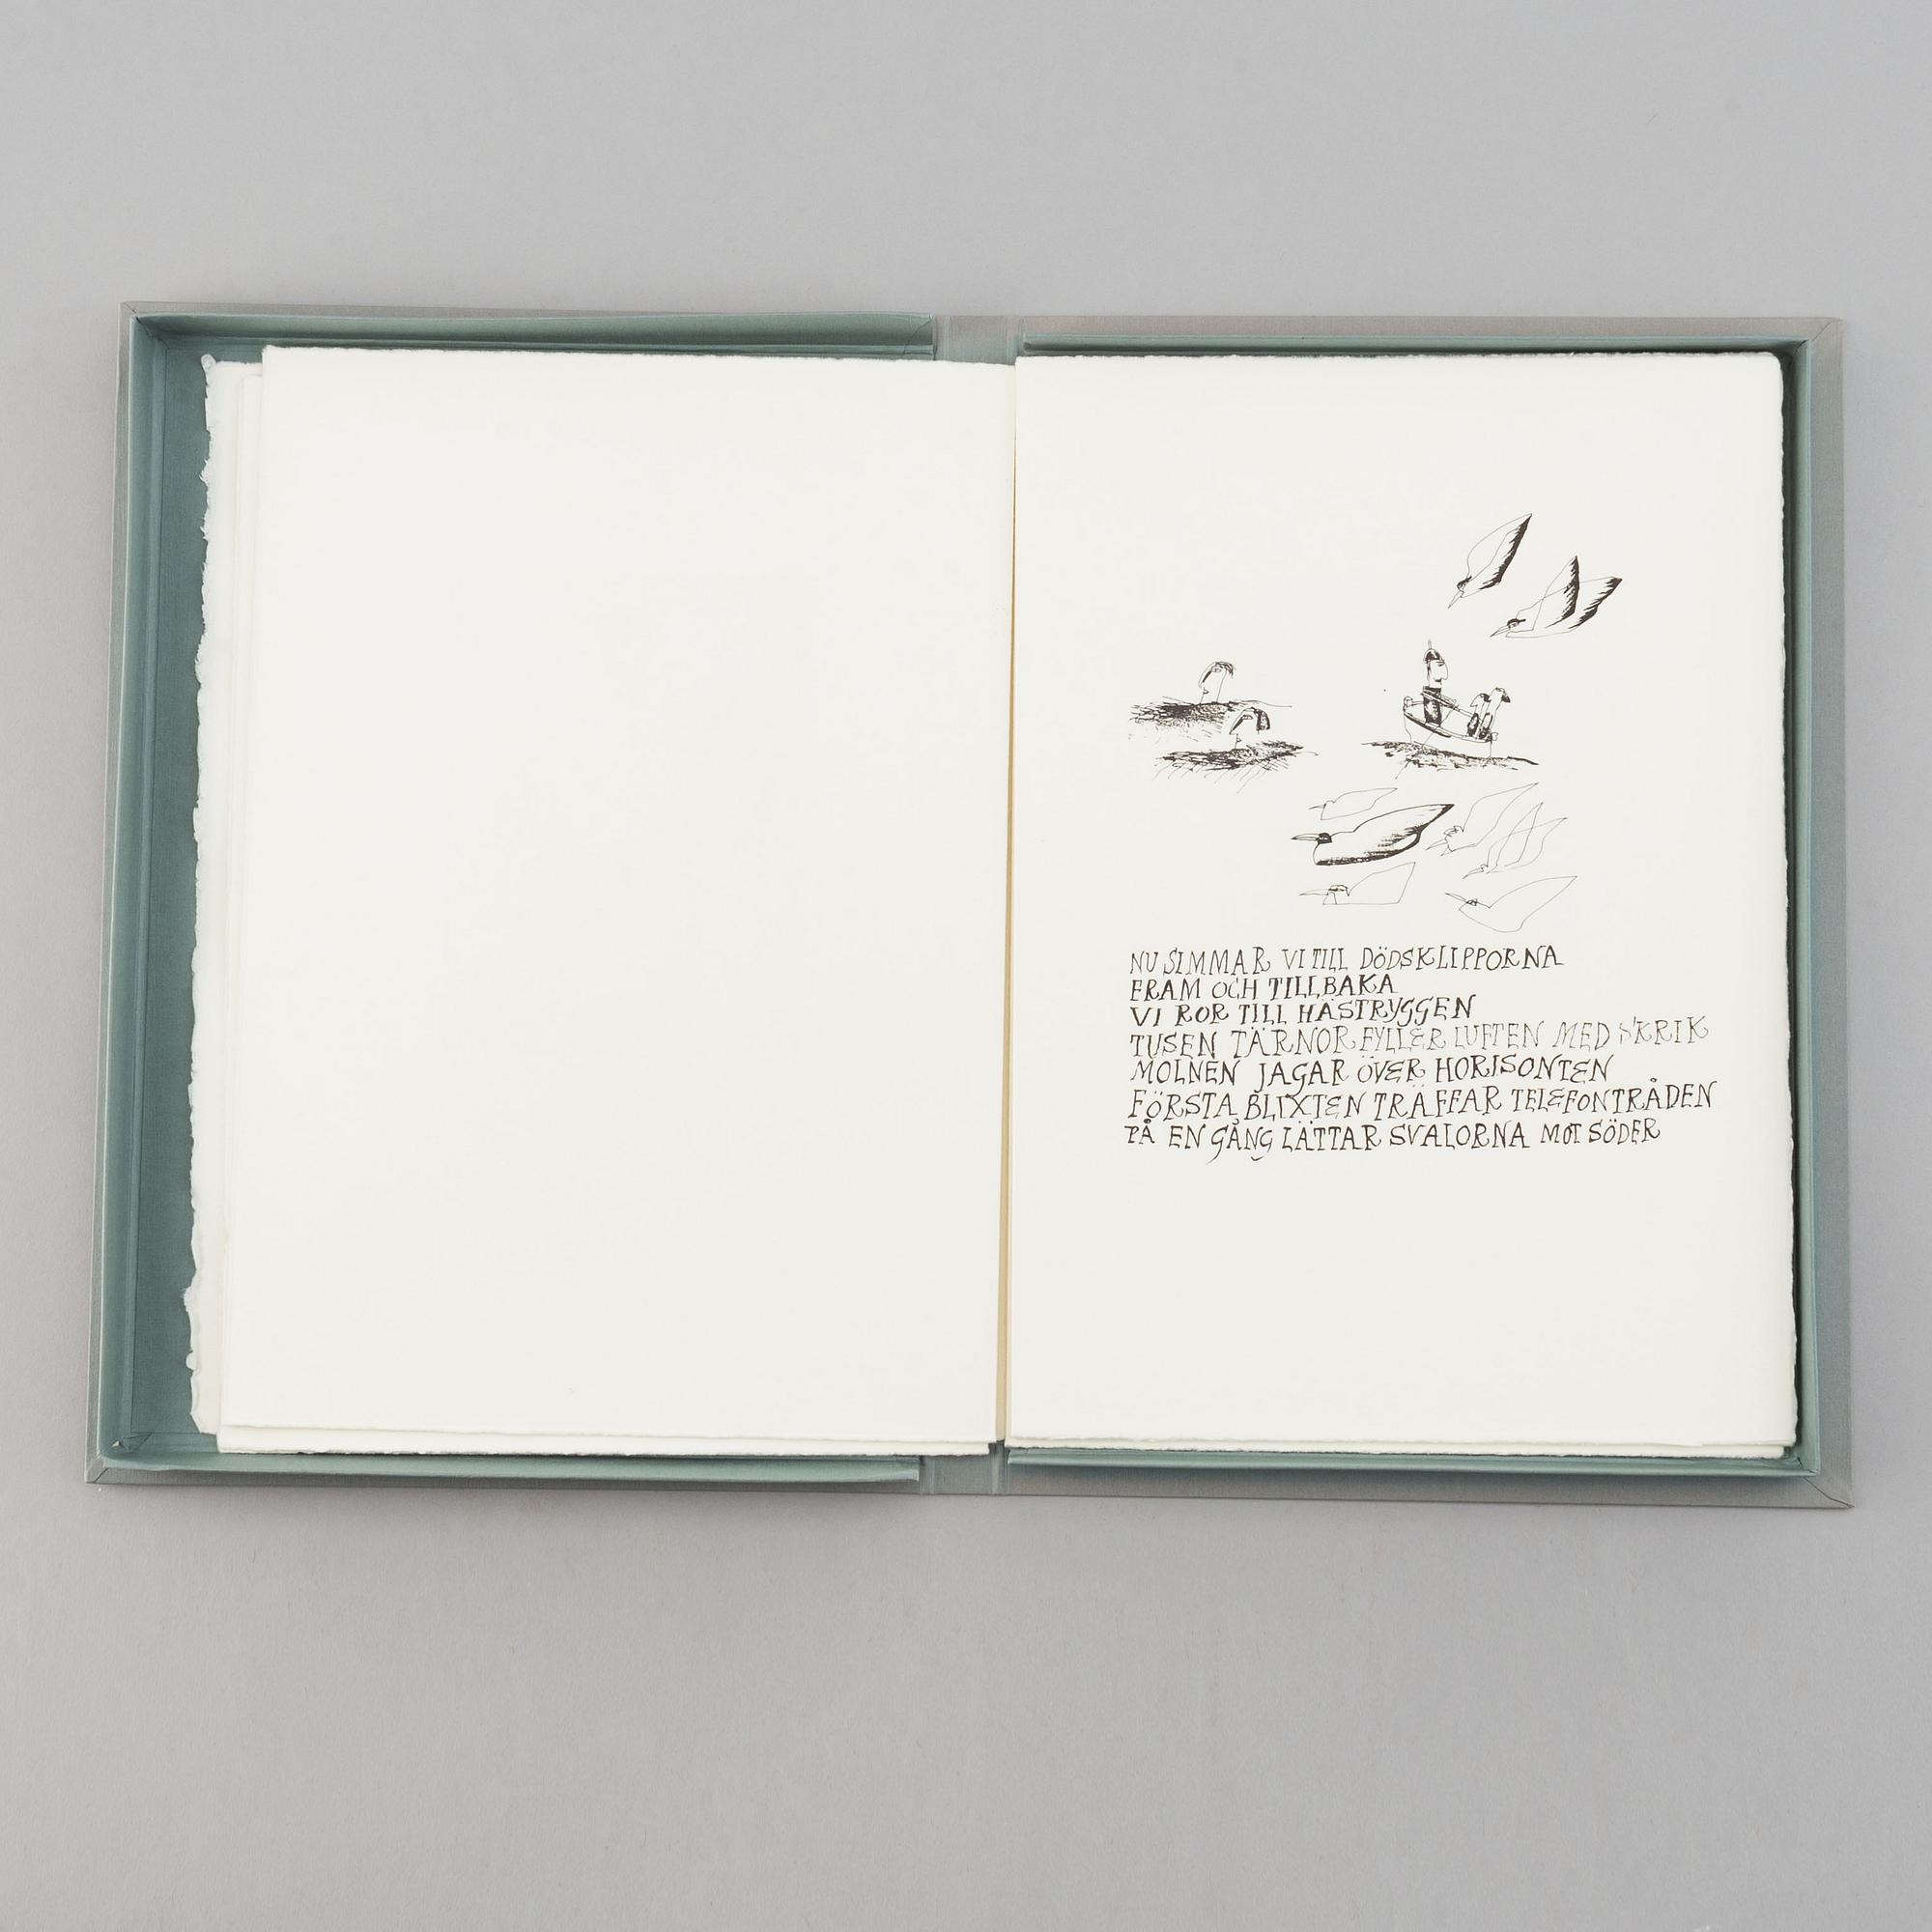 NU SIMMAR VI TILL DÖDSKLIPPORNA
FRAM OCH TILLBAKA
VI ROR TILL HÄSTRYGGEN
TUSEN TÄRNOR FYLLER LUFTEN MED SKRIK
MOLNEN JAGAR ÖVER HORISONTEN
FÖRSTA BLIXTEN TRÄFFAR TELEFONTRÅDEN
PÅ EN GÅNG LÄTTAR SVALORNA MOT SÖDER